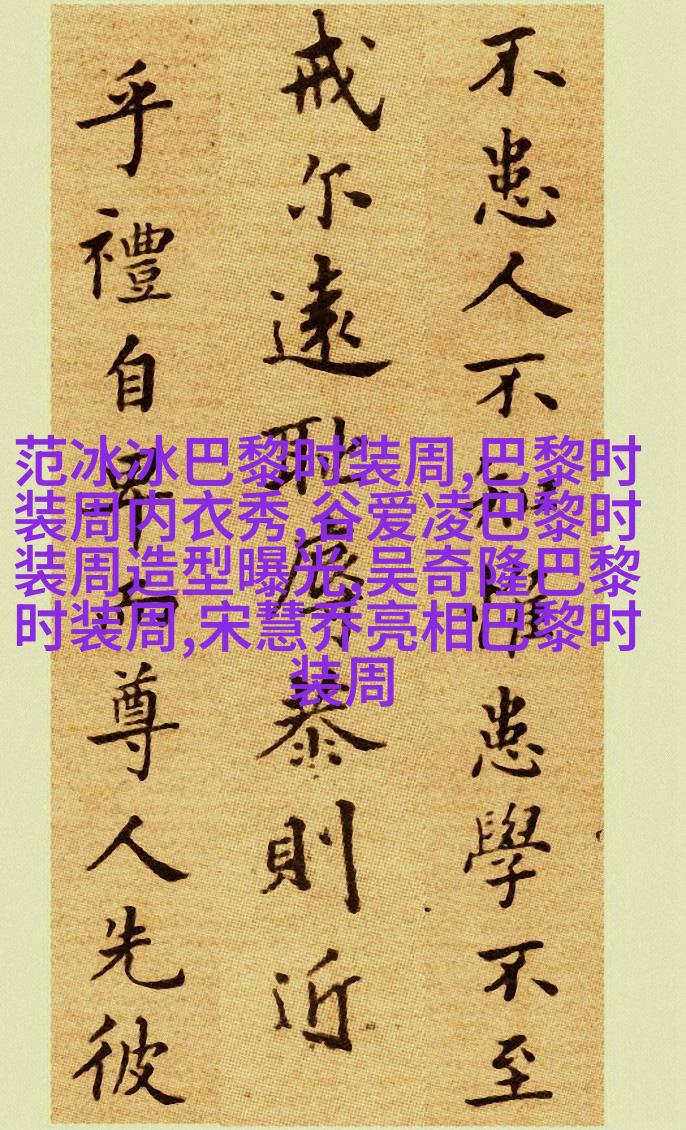 不患人不知惟患學不至
戒尔遠耻辱恭則近
乎禮自卑而尊人先彼
范冰冰巴黎时装周,巴黎时
装周内衣秀,谷爱凌巴黎时
装周造型曝光,吴奇隆巴黎
时装周,宋慧乔亮相巴黎时
装周